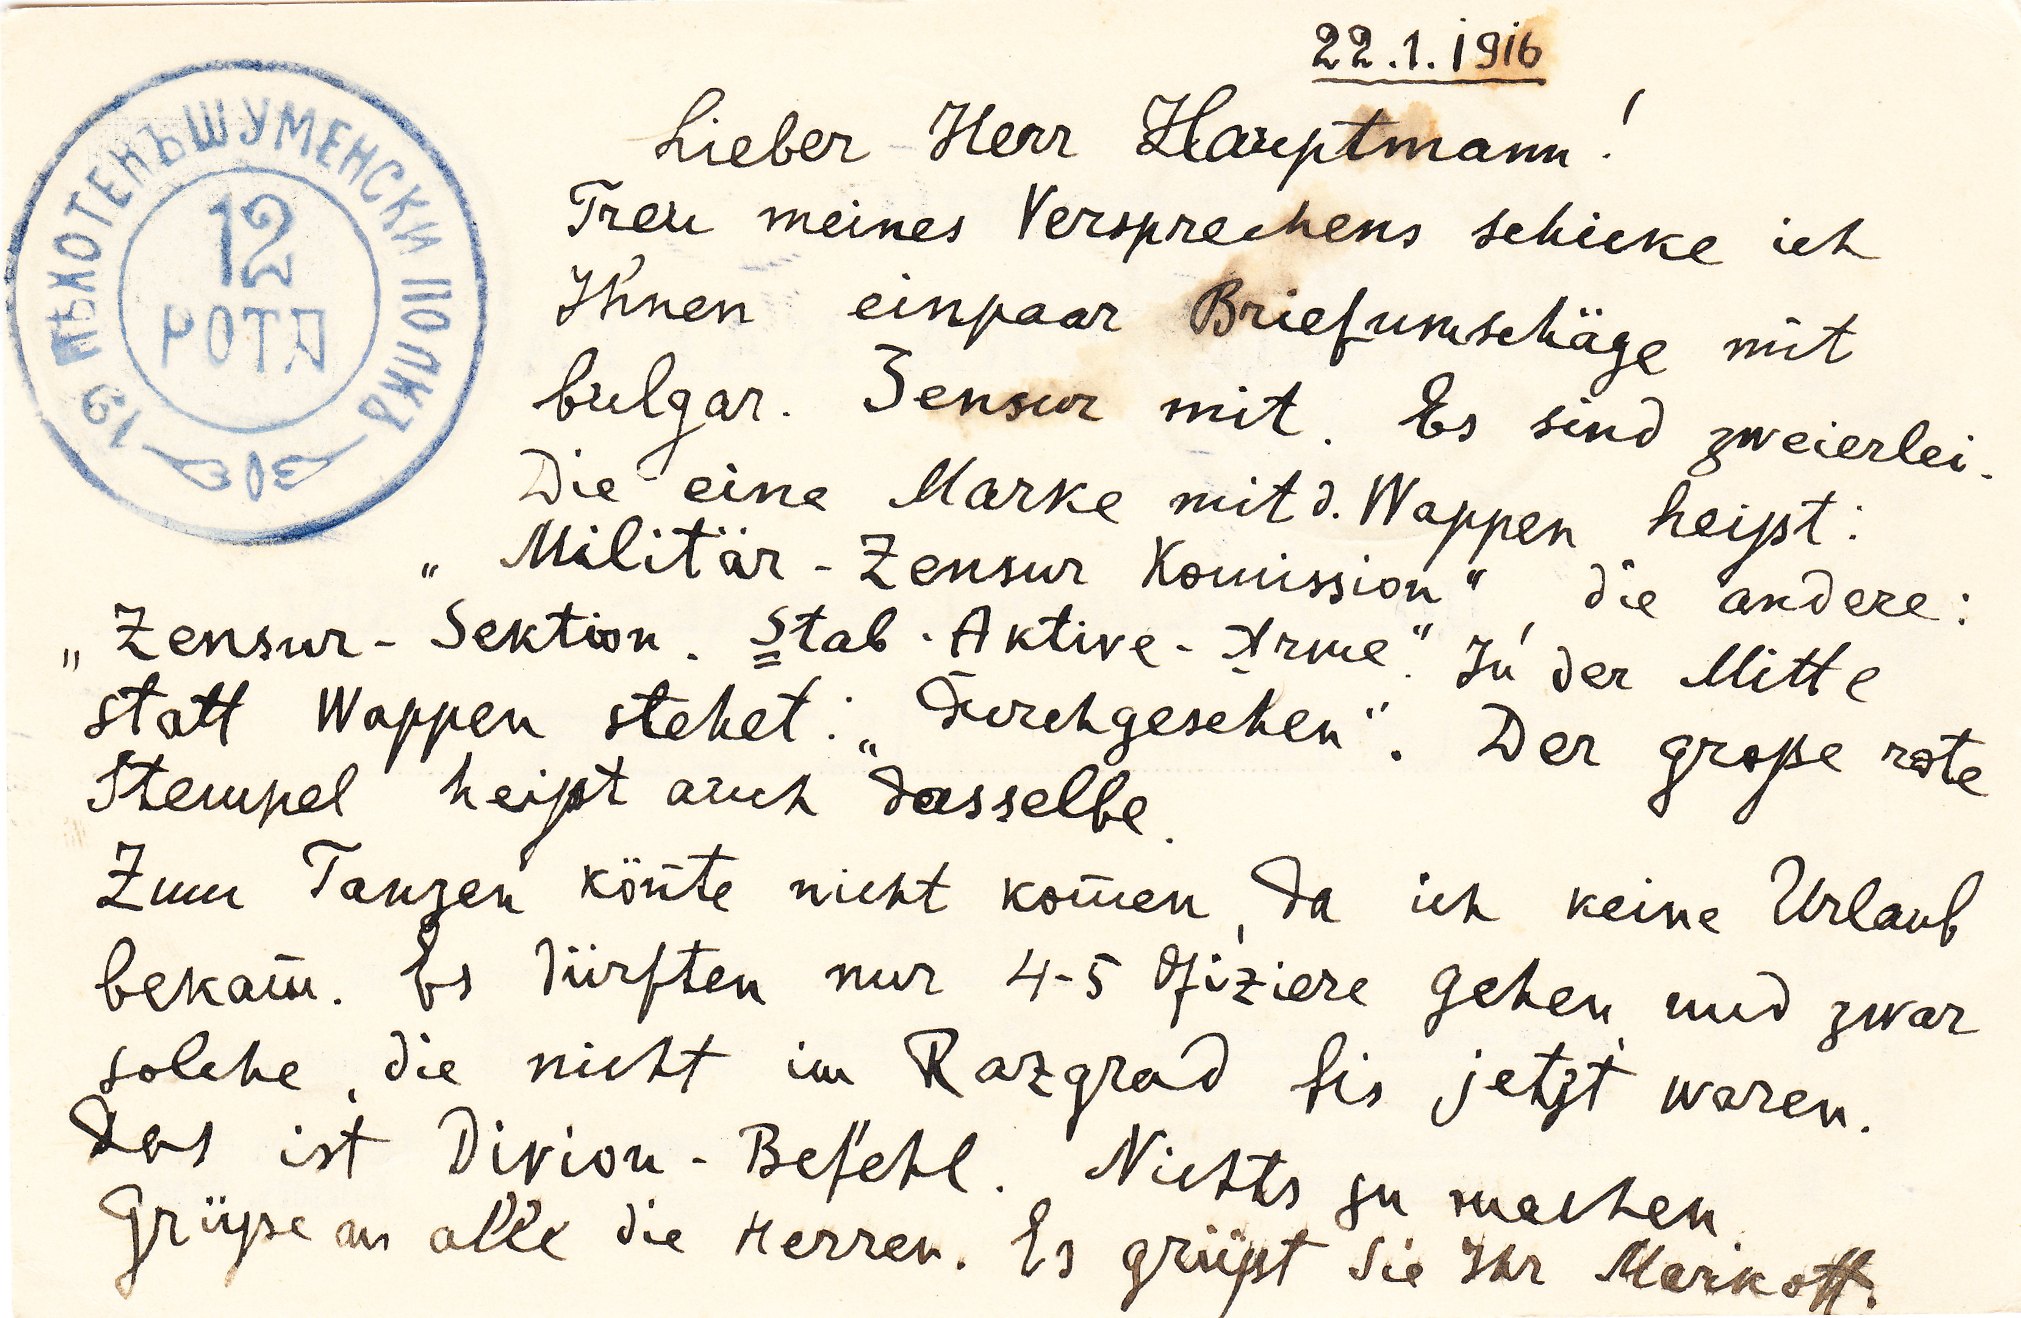 22.1.1916
19 ПѢХОТЕНЪ ШУМЕНСКИ ПОЛКЪ
12
РОТА
Lieber Herr Hauptmann!
Treu meines Versprechens schicke ich
Ihnen einpaar Briefumschäge mit
bulgar. Zensur mit. Es sind zweierlei.
Die eine Marke mit d. Wappen heißt:
„Militär-Zensur Komission“, die andere:
„Zensur-Sektion. Stab-Aktive-Arme.“ In der Mitte
statt Wappen stehet: „Durchgesehen“. Der große rote
Stempel heißt auch dasselbe.
Zum Tanzen kön̄te nicht kom̄en, da ich keine Urlaub
bekam̄. Es dürften nur 4-5 Ofiziere gehen und zwar
solche, die nicht im Razgrad bis jetzt waren.
Das ist Division-Befehl. Nichts zu machen.
Grüße an alle die Herren. Es grüßt Sie Ihr Markoff.